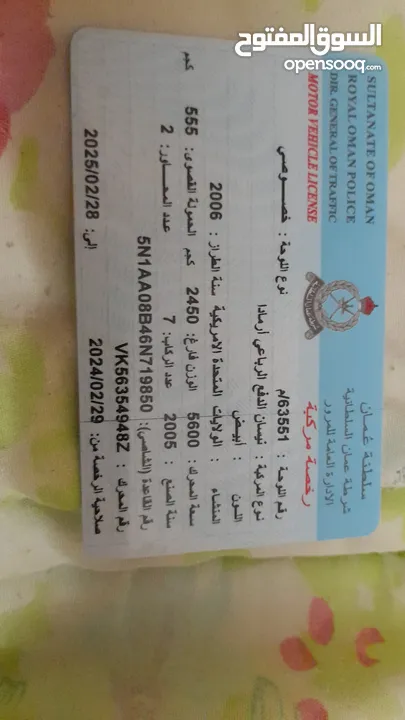 السوق المفتوح
opensooq.com
SULTANATE OF OMAN
ROYAL OMAN POLICE
DIR. GENERAL OF TRAFFIC
MOTOR VEHICLE LICENSE
سلطنة عمان
شرطة عمان السلطانية
الإدارة العامة للمرور
رخصة مركبة
رقم اللوحة : 63551/م نوع اللوحة : خصوصي
نوع المركبة : نيسان الدفع الرباعي أرمادا
اللون : ابيض
المنشاء : الولايات المتحدة الامريكية سنة الطراز : 2006
سعة المحرك : 5600 الوزن فارغ : 2450 كجم الحمولة القصوى: 555 كجم
سنة الصنع : 2005 عدد الركاب: 7 عدد المحاور : 2
رقم القاعدة (الشاصي): 5N1AA08B46N719850
رقم المحرك : VK56354948Z
صلاحية الرخصة من: 2024/02/29 إلى: 2025/02/28